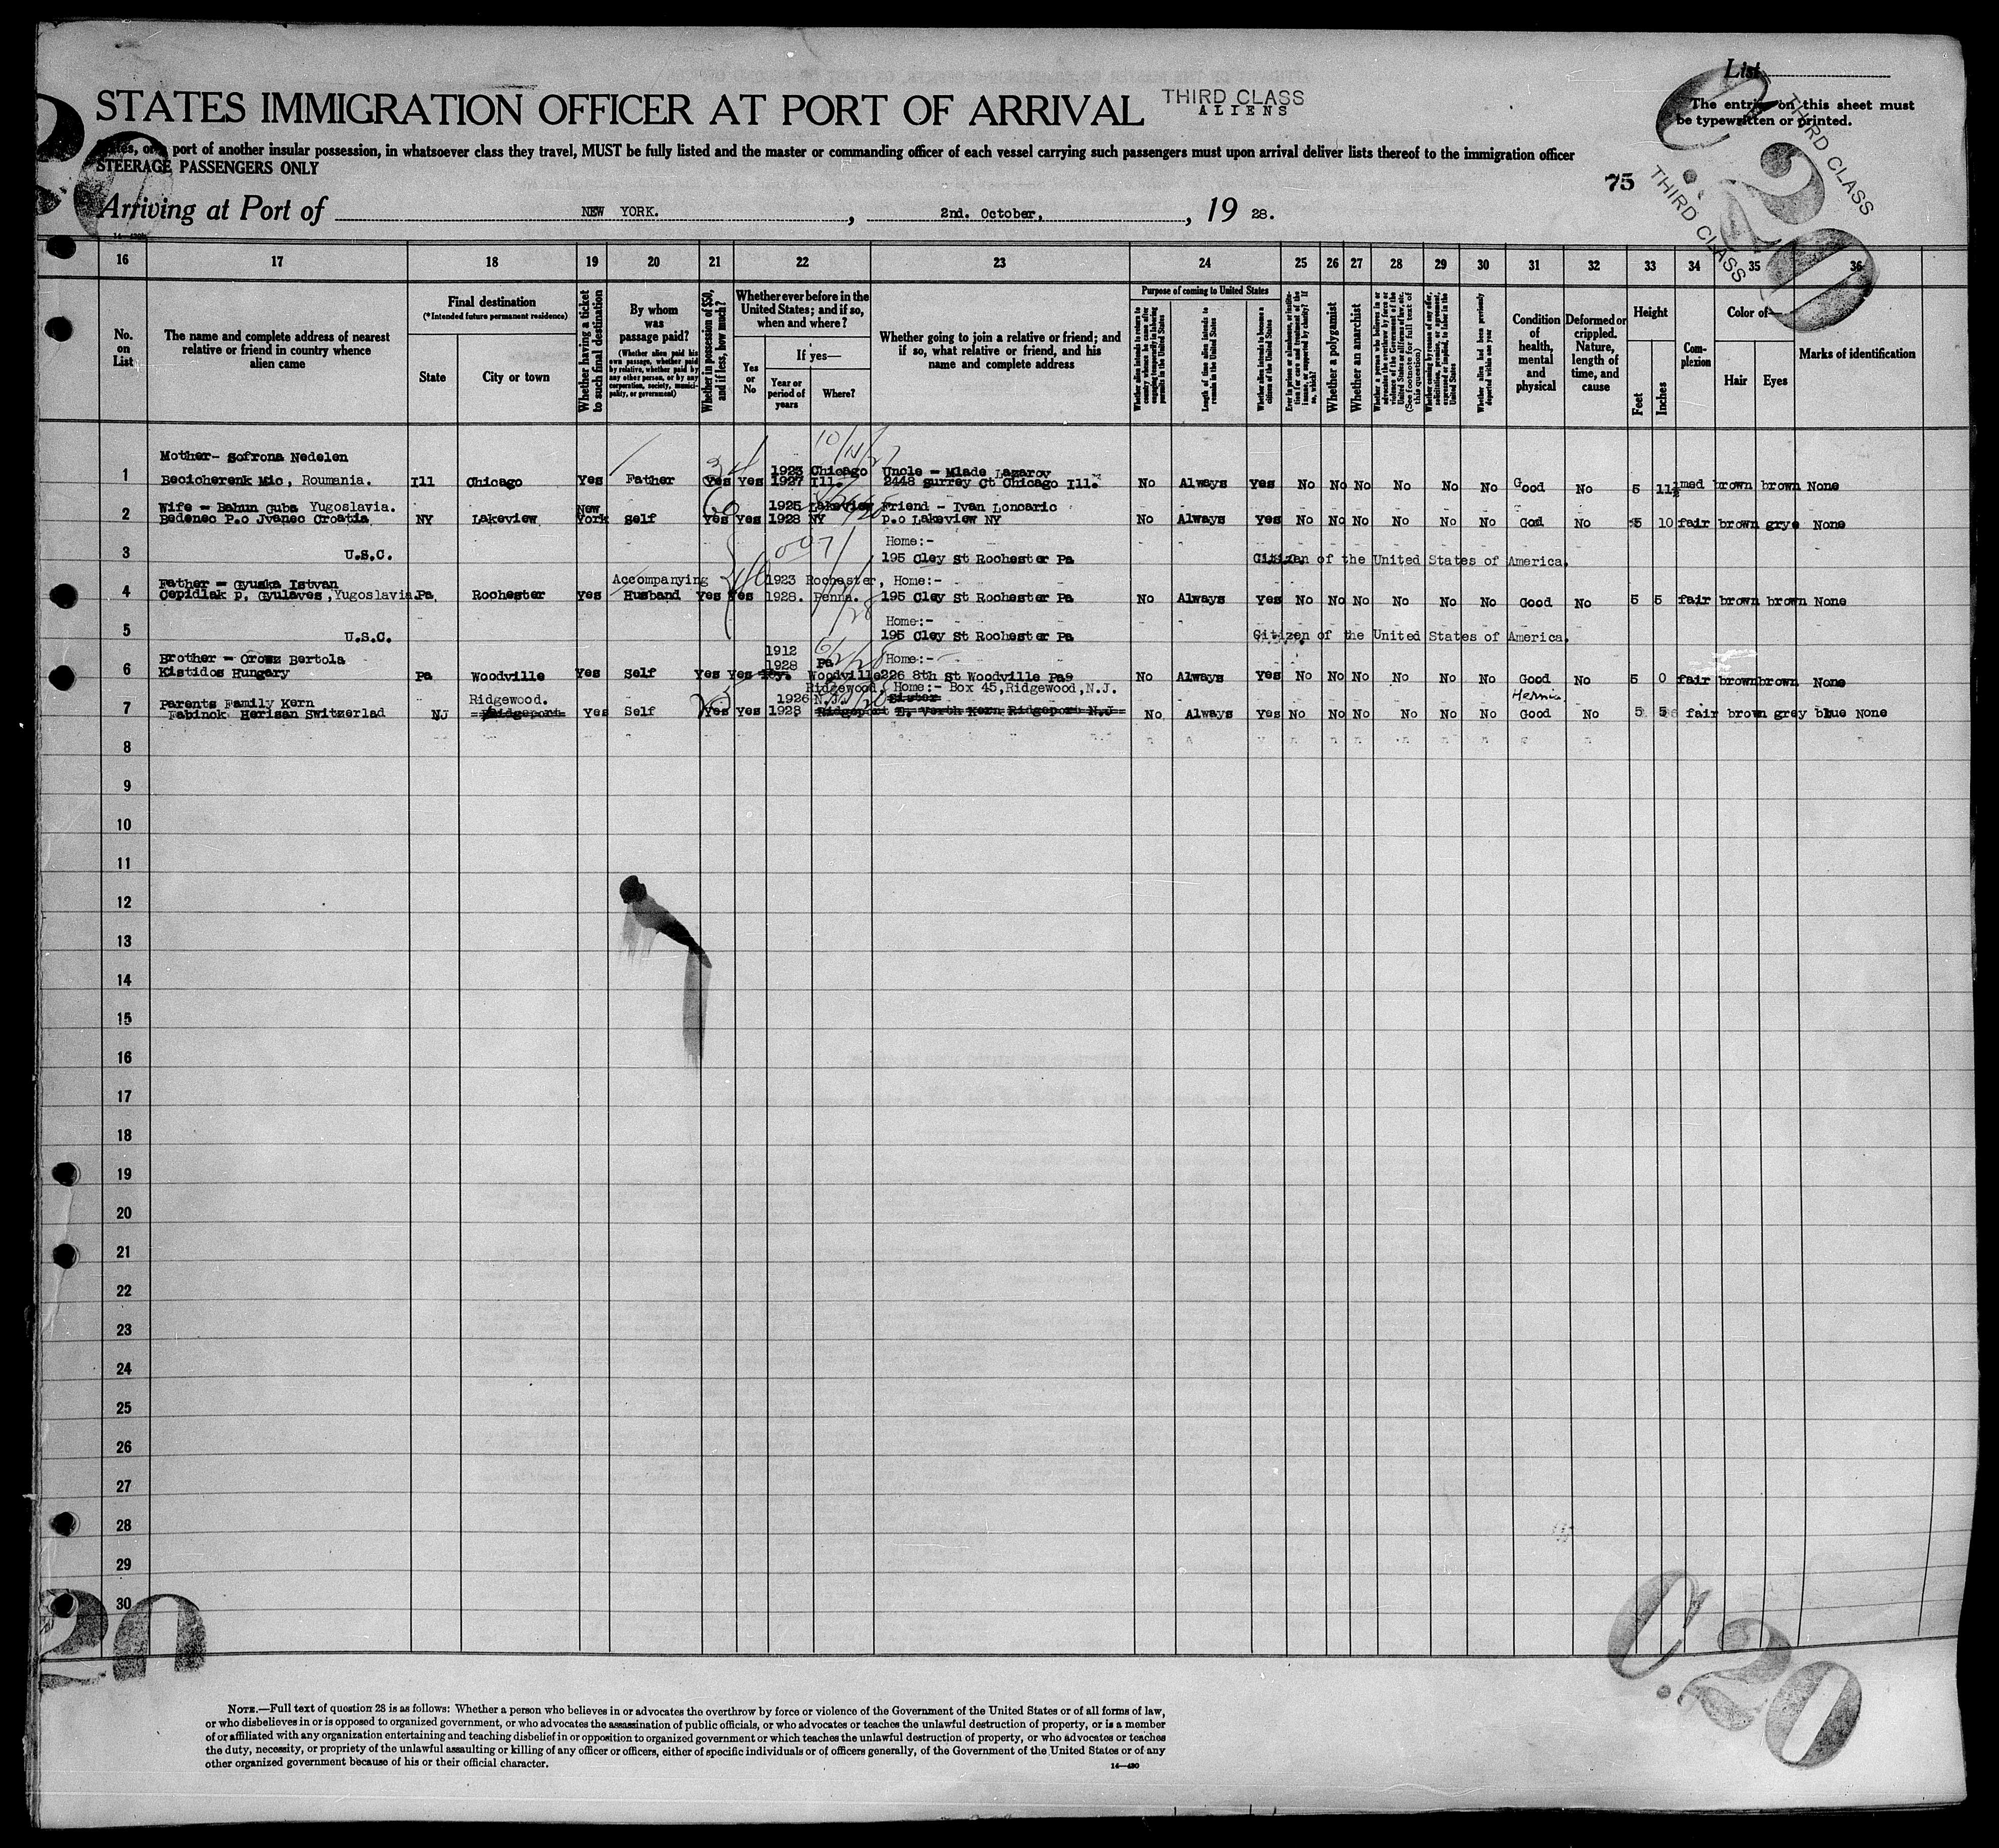 List
STATES IMMIGRATION OFFICER AT PORT OF ARRIVAL
THIRD CLASS
ALIENS
The entries on this sheet must
be typewritten or printed.
port of another insular possession, in whatsoever class they travel, MUST be fully listed and the master or commanding officer of each vessel carrying such passengers must upon arrival deliver lists thereof to the immigration officer
STEERAGE PASSENGERS ONLY
75
THIRD CLASS
THIRD CLASS
C.20
Arriving at Port of NEW YORK. , 2nd. October, , 19 28.
16 17 18 19 20 21 22 23 24 25 26 27 28 29 30 31 32 33 34 35 36
No. on List
The name and complete address of nearest relative or friend in country whence alien came
Final destination
(*Intended future permanent residence)
State
City or town
Whether having a ticket to such final destination
By whom was passage paid?
(Whether alien paid his own passage, whether paid by relative, whether paid by any other person, or by any corporation, society, municipality, or government)
Whether in possession of $50, and if less, how much?
Whether ever before in the United States; and if so, when and where?
Yes or No
If yes—
Year or period of years
Where?
Whether going to join a relative or friend; and if so, what relative or friend, and his name and complete address
Purpose of coming to United States
Whether alien intends to return to country whence he came after engaging temporarily in laboring pursuits in United States
Length of time alien intends to remain in the United States
Whether alien intends to become a citizen of the United States
Whether a polygamist
Whether an anarchist
Whether alien had been previously deported within one year
Condition of health, mental and physical
Deformed or crippled. Nature, length of time, and cause
Height
Feet
Inches
Complexion
Color of—
Hair
Eyes
Marks of identification
10/14/27
Mother- Sofrona Nedelen
1923 Chicago Uncle - Mlade Lazarov
1 Becicherenk Mic, Roumania. Ill Chicago Yes Father Yes Yes 1927 Ill. 2448 Surrey Ct Chicago Ill. No Always Yes No No No No No No Good No 5 11½ med brown brown None
Wife - Bahun Guba Yugoslavia. New 1925 Lakeview Friend - Ivan Loncaric
2 Bedenec P.o Jvanec Croatia NY Lakeview York Self Yes Yes 1928 NY p.o Lakeview NY No Always Yes No No No No No No Good No 5 10 fair brown grye None
Home:-
3 U.S.C. 195 Cley St Rochester Pa Citizen of the United States of America.
Father - Gyuska Istvan Accompanying 1923 Rochester, Home:-
4 Cepidlak p. Gyulaves, Yugoslavia. Pa Rochester Yes Husband Yes Yes 1928. Penna. 195 Cley St Rochester Pa No Always Yes No No No No No No Good No 5 5 fair brown brown None
Home:-
5 U.S.C. 195 Cley St Rochester Pa Citizen of the United States of America.
1912
Brother - Orosz Bertola 1928 Pa Home:-
6 Kistidos Hungary Pa Woodville Yes Self Yes Yes Woodville 226 8th St Woodville Pa No Always Yes No No No No No No Good No 5 0 fair brown brown None
Ridgewood, Home:- Box 45, Ridgewood, N.J.
Parents Family Kern Ridgewood. 1926 N.J. Sister Hernia
7 Fabinok Herisan Switzerlad NJ Ridgeport Yes Self Yes Yes 1928 Ridgeport E. Verth Kern Ridgeport N.J No Always Yes No No No No No No Good No 5 5 fair brown grey blue None
8
9
10
11
12
13
14
15
16
17
18
19
20
21
22
23
24
25
26
27
28
29
30
20
C.20
NOTE.—Full text of question 28 is as follows: Whether a person who believes in or advocates the overthrow by force or violence of the Government of the United States or of all forms of law,
or who disbelieves in or is opposed to organized government, or who advocates the assassination of public officials, or who advocates or teaches the unlawful destruction of property, or is a member
of or affiliated with any organization entertaining and teaching disbelief in or opposition to organized government or which teaches the unlawful destruction of property, or who advocates or teaches
the duty, necessity, or propriety of the unlawful assaulting or killing of any officer or officers, either of specific individuals or of officers generally, of the Government of the United States or of any
other organized government because of his or their official character.
14—430